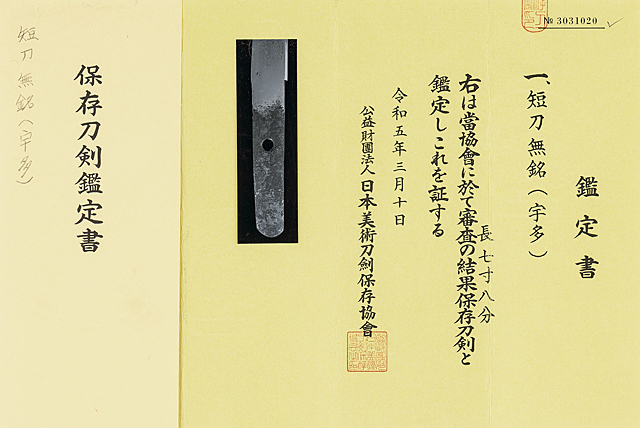 № 3031020
鑑定書
一、短刀 無銘（宇多）
長 七寸八分
右は當協會に於て審査の結果保存刀剣と
鑑定しこれを証する
令和五年三月十日
公益財團法人 日本美術刀劍保存協會
保存刀剣鑑定書
短刀 無銘（宇多）